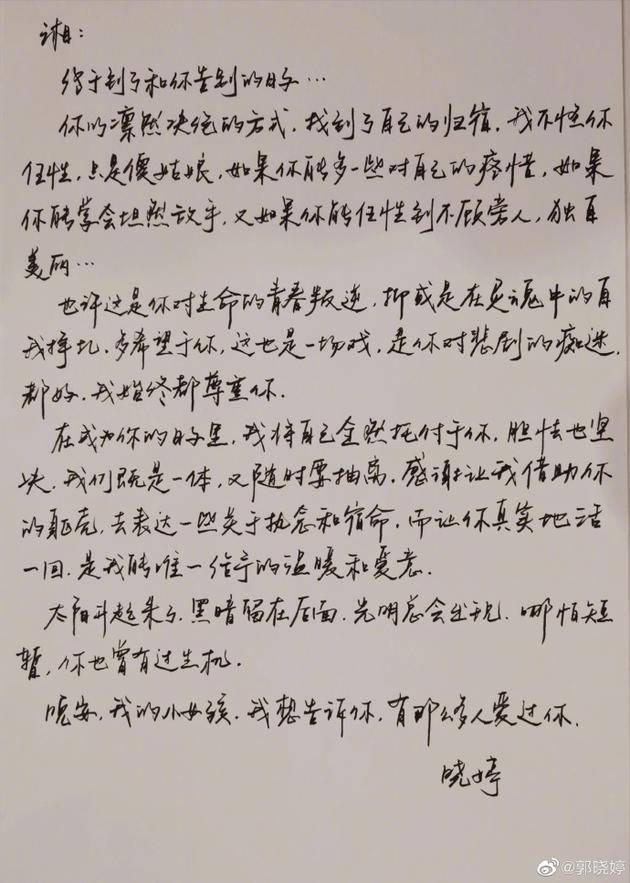 终于到了和你告别的日子…
你以凛然决绝的方式，找到了自己的归宿，我不怪你
任性，只是傻姑娘，如果你能多一些对自己的疼惜，如果
你能学会坦然放手，又如果你能任性到不顾旁人，独自
美丽…
也许这是你对生命的青春叛逆，抑或是在灵魂中的自
我挣扎，多希望于你，这也是一场戏，是你对悲剧的痴迷，
都好，我始终都尊重你.
在成为你的日子里，我将自己全然托付于你，胆怯也坚
决，我们既是一体，又随时要抽离，感谢让我借助你
的躯壳，去表达一些关于执念和宿命，而让你真实地活
一回，是我能唯一给予的温暖和爱意.
太阳升起来了，黑暗留在后面，光明总会出现，哪怕短
暂，你也曾有过生机.
晚安，我的小女孩，我想告诉你，有那么多人爱过你.
晓婷
@郭晓婷